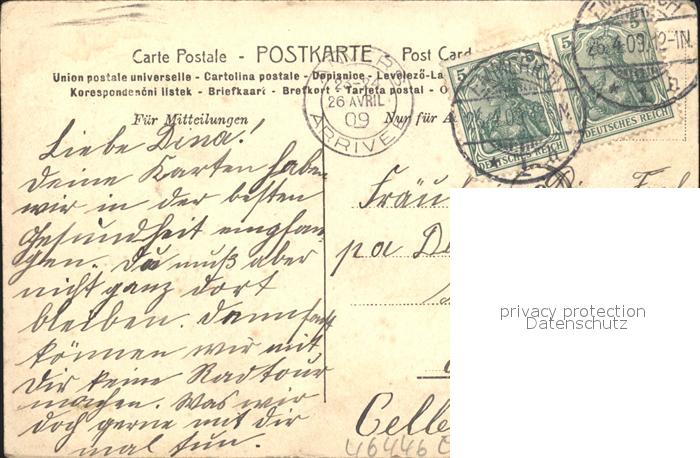 Carte Postale - POSTKARTE - Post Card
Union postale universelle - Cartolina postale - Dopisnice - Levelező-La
Korespondenční listek - Briefkaart - Brefkort - Tarjeta postal - O
Für Mitteilungen
Nur für A
Liebe Dina!
Deine Karten haben
wir in der besten
Gesundheit empfan
gen. Du muß aber
nicht ganz dort
bleiben. Dann
können wir mit
Dir keine Radtour
machen. Was wir
doch gerne mit dir
mal tun.
26 AVRIL
09
ARRIVEE
5
DEUTSCHES REICH
5
DEUTSCHES REICH
EMMERICH
26.4.09.12-1N.
Fräu
pa
Celle
46446
privacy protection
Datenschutz